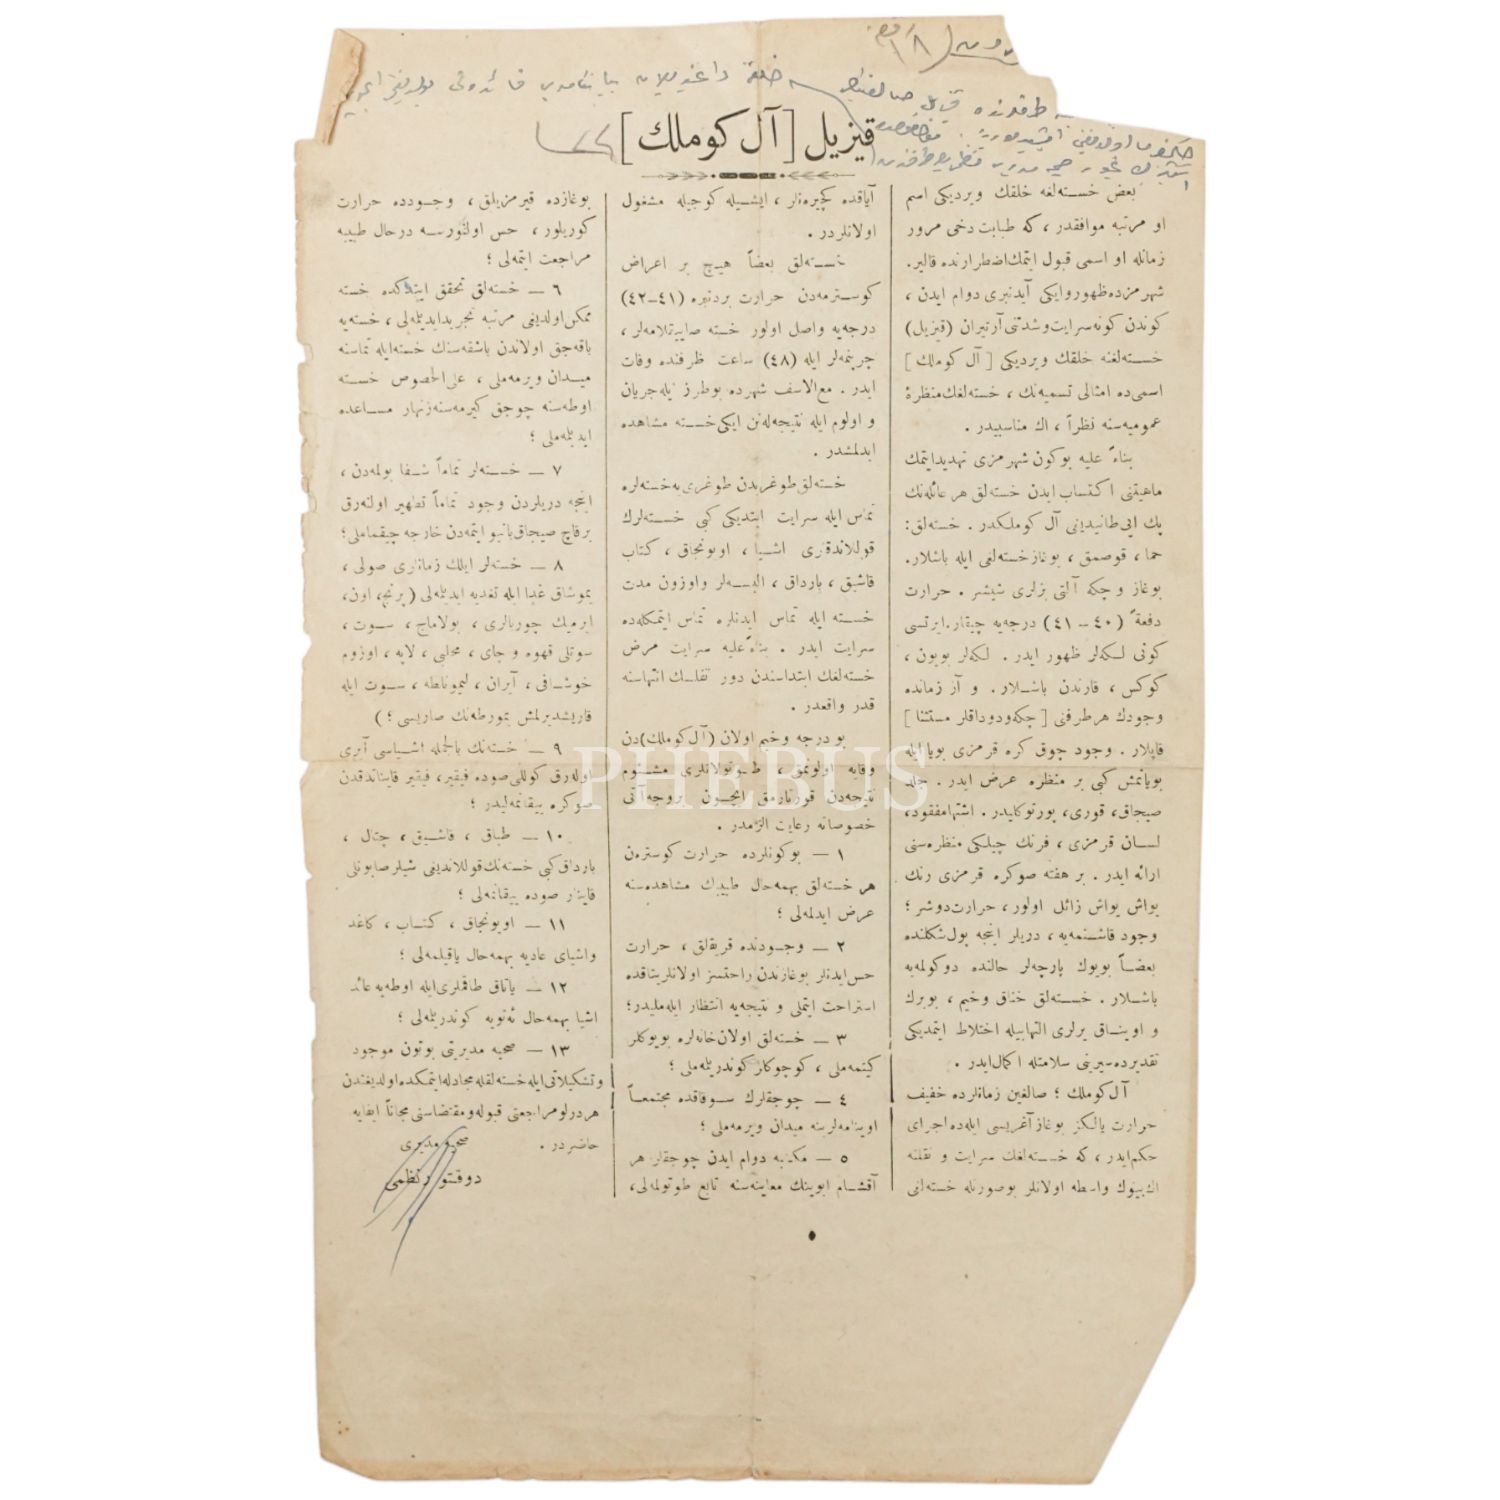 قيزيل [ آل كوملك ]
بعض خسته‌لغه خلقك ويرديكى اسم
او مرتبه موافقدر ، كه طبابت دخى مرور
زمانله او اسمى قبول ايتمك اضطرارنده قالير.
شهرمزده ظهور و ايكى آيدنبرى دوام ايدن ،
كوندن كونه سرايت و شدتنى آرتيران (قيزيل)
خسته‌لغنه خلقك ويرديكى [ آل كوملك ]
اسمى ده امثالى تسميه‌نك ، خسته‌لغك منظرۀ
عموميه‌سنه نظراً ، اك مناسبيدر .
بناءً عليه بوكون شهرمزى تهديد ايتمك
ماهيتنى اكتساب ايدن خسته‌لق هر عائله‌نك
پك ايى طانيديغى آل كوملكدر . خسته‌لق:
حما ، قوصمق ، بوغاز خسته‌لغى ايله باشلار.
بوغاز و چكه آلتى بزلرى شيشر . حرارت
دفعةً (٤٠ – ٤١) درجه‌يه چيقار. ايرتسى
كونى لكه‌لر ظهور ايدر . لكه‌لر بويون ،
كوكس ، قارندن باشلار . و آز زمانده
وجودك هر طرفنى [ چكه و دوداقلر مستثنا ]
قاپلار . وجود چوق كره قرمزى بويا ايله
بويانمش كبى بر منظره عرض ايدر . جلد
صيجاق، قورى، پورتوكليدر. اشتها مفقود،
لسان قرمزى ، فرنك چيلكى منظره‌سنى
ارائه ايدر . بر هفته صوكره قرمزى رنك
يواش يواش زائل اولور ، حرارت دوشر ؛
وجود قاشنمه‌يه ، دريلر اينجه پول شكلنده
بعضاً بويوك پارچه‌لر حالنده دوكولمه‌يه
باشلار . خسته‌لق خناق وخيم ، بوبرك
و اويناق يرلرى التهابيله اختلاط ايتمديكى
تقديرده سيرينى سلامتله اكمال ايدر .
آل كوملك ؛ صالغين زمانلرده خفيف
حرارت يالكز بوغاز آغريسى ايله‌ده اجراى
حكم ايدر ، كه خسته‌لغك سرايت و نقلنه
اك بيوك واسطه اولانلر بوصورتله خسته‌لغى
آياقده كچيره‌نلر ، ايشيله كوجيله مشغول
اولانلردر .
خسته‌لق بعضاً هيچ بر اعراض
كوسترمه‌دن حرارت بردنبره (٤١–٤٢)
درجه‌يه واصل اولور خسته صاييقلامه‌لر ،
چرپنمه‌لر ايله (٤٨) ساعت ظرفنده وفات
ايدر . مع‌الاسف شهرده بوطرز ايله جريان
و اولوم ايله نتيجه‌له‌نن ايكى خسته مشاهده
ايدلمشدر .
خسته‌لق طوغريدن طوغرى‌يه خسته‌لره
تماس ايله سرايت ايتديكى كبى خسته‌لرك
قوللاندقلرى اشيا ، اويونجاق ، كتاب
قاشيق ، بارداق ، البسه‌لر و اوزون مدت
خسته ايله تماس ايدنلره تماس ايتمكله‌ده
سرايت ايدر . بناءً عليه سرايت مرض
خسته‌لغك ابتداسندن دور تفلسك انتهاسنه
قدر واقعدر .
بو درجه وخيم اولان (آل كوملك)دن
وقايه اولونمق ، طوتولانلرى مشئوم
نتيجه‌دن قورتارمق ايچون بروجه آتى
خصوصاته رعايت الزمدر .
١ — بوكونلرده حرارت كوسترەن
هر خسته‌لق بهمه‌حال طبيبك مشاهده‌سنه
عرض ايدلمه‌لى ؛
٢ — وجودنده قريقلق ، حرارت
حس ايدنلر بوغازندن راحتسز اولانلر يتاقده
استراحت ايتملى و نتيجه‌يه انتظار ايله‌مليدر؛
٣ — خسته‌لق اولان خانه‌لره بويوكلر
كيتمه‌ملى ، كوچوكلر كوندريلمه‌ملى ؛
٤ — چوجقلرك سوقاقده مجتمعاً
اوينامه‌لرينه ميدان ويرمه‌ملى ؛
٥ — مكتبه دوام ايدن چوجقلر هر
آقشام ابوينك معاينه‌سنه تابع طوتولمه‌لى،
بوغازده قيرمزيلق ، وجودده حرارت
كوريلور ، حس اولنورسه درحال طبيبه
مراجعت ايتمه‌لى ؛
٦ — خسته‌لق تحقق ايتدكده خسته
ممكن اولديغى مرتبه تجريد ايديلمه‌لى ، خسته‌يه
باقه‌جق اولاندن باشقه‌سنك خسته ايله تماسنه
ميدان ويرمه‌ملى ، على‌الخصوص خسته
اوطه‌سنه چوجق كيرمه‌سنه زنهار مساعده
ايديلمه‌ملى ؛
٧ — خسته‌لر تماماً شفا بولمه‌دن ،
اينجه دريلردن وجود تماماً تطهير اولنه‌رق
برقاچ صيجاق بانيو ايتمه‌دن خارجه چيقماملى؛
٨ — خسته‌لر ايلك زمانلرى صولى ،
يموشاق غدا ايله تغديه ايديلمه‌لى (پرنج، اون،
ايرميك چوربالرى ، بولاماج ، سوت ،
سوتلى قهوه و چاى ، محلبى ، لاپه ، اوزوم
خوشافى ، آيران ، ليموناطه ، سوت ايله
قاريشديرلمش يمورطه‌نك صاريسى ؛ )
٩ — خسته‌نك بالجمله اشياسى آيرى
اوله‌رق كوللى صوده فيقير، فيقير قايناتدقدن
صوكره ييقانمه‌ليدر ؛
١٠ — طباق ، قاشيق ، چتال ،
بارداق كبى خسته‌نك قوللانديغى شيلر صابونلى
قاينار صوده ييقانمه‌لى ؛
١١ — اويونجاق ، كتاب ، كاغد
واشياى عاديه بهمه‌حال ياقيلمه‌لى ؛
١٢ — ياتاق طاقملرى ايله اوطه‌يه عائد
اشيا بهمه‌حال ئه‌تويه كوندريلمه‌لى ؛
١٣ — صحيه مديريتى بوتون موجود
و تشكيلاتى ايله خسته‌لقله مجادله ايتمكده اولديغندن
هر درلو مراجعتى قبوله و مقتضاسنى مجاناً ايفايه
حاضردر .
صحيه مديرى
دوقتور نظمى
PHEBUS